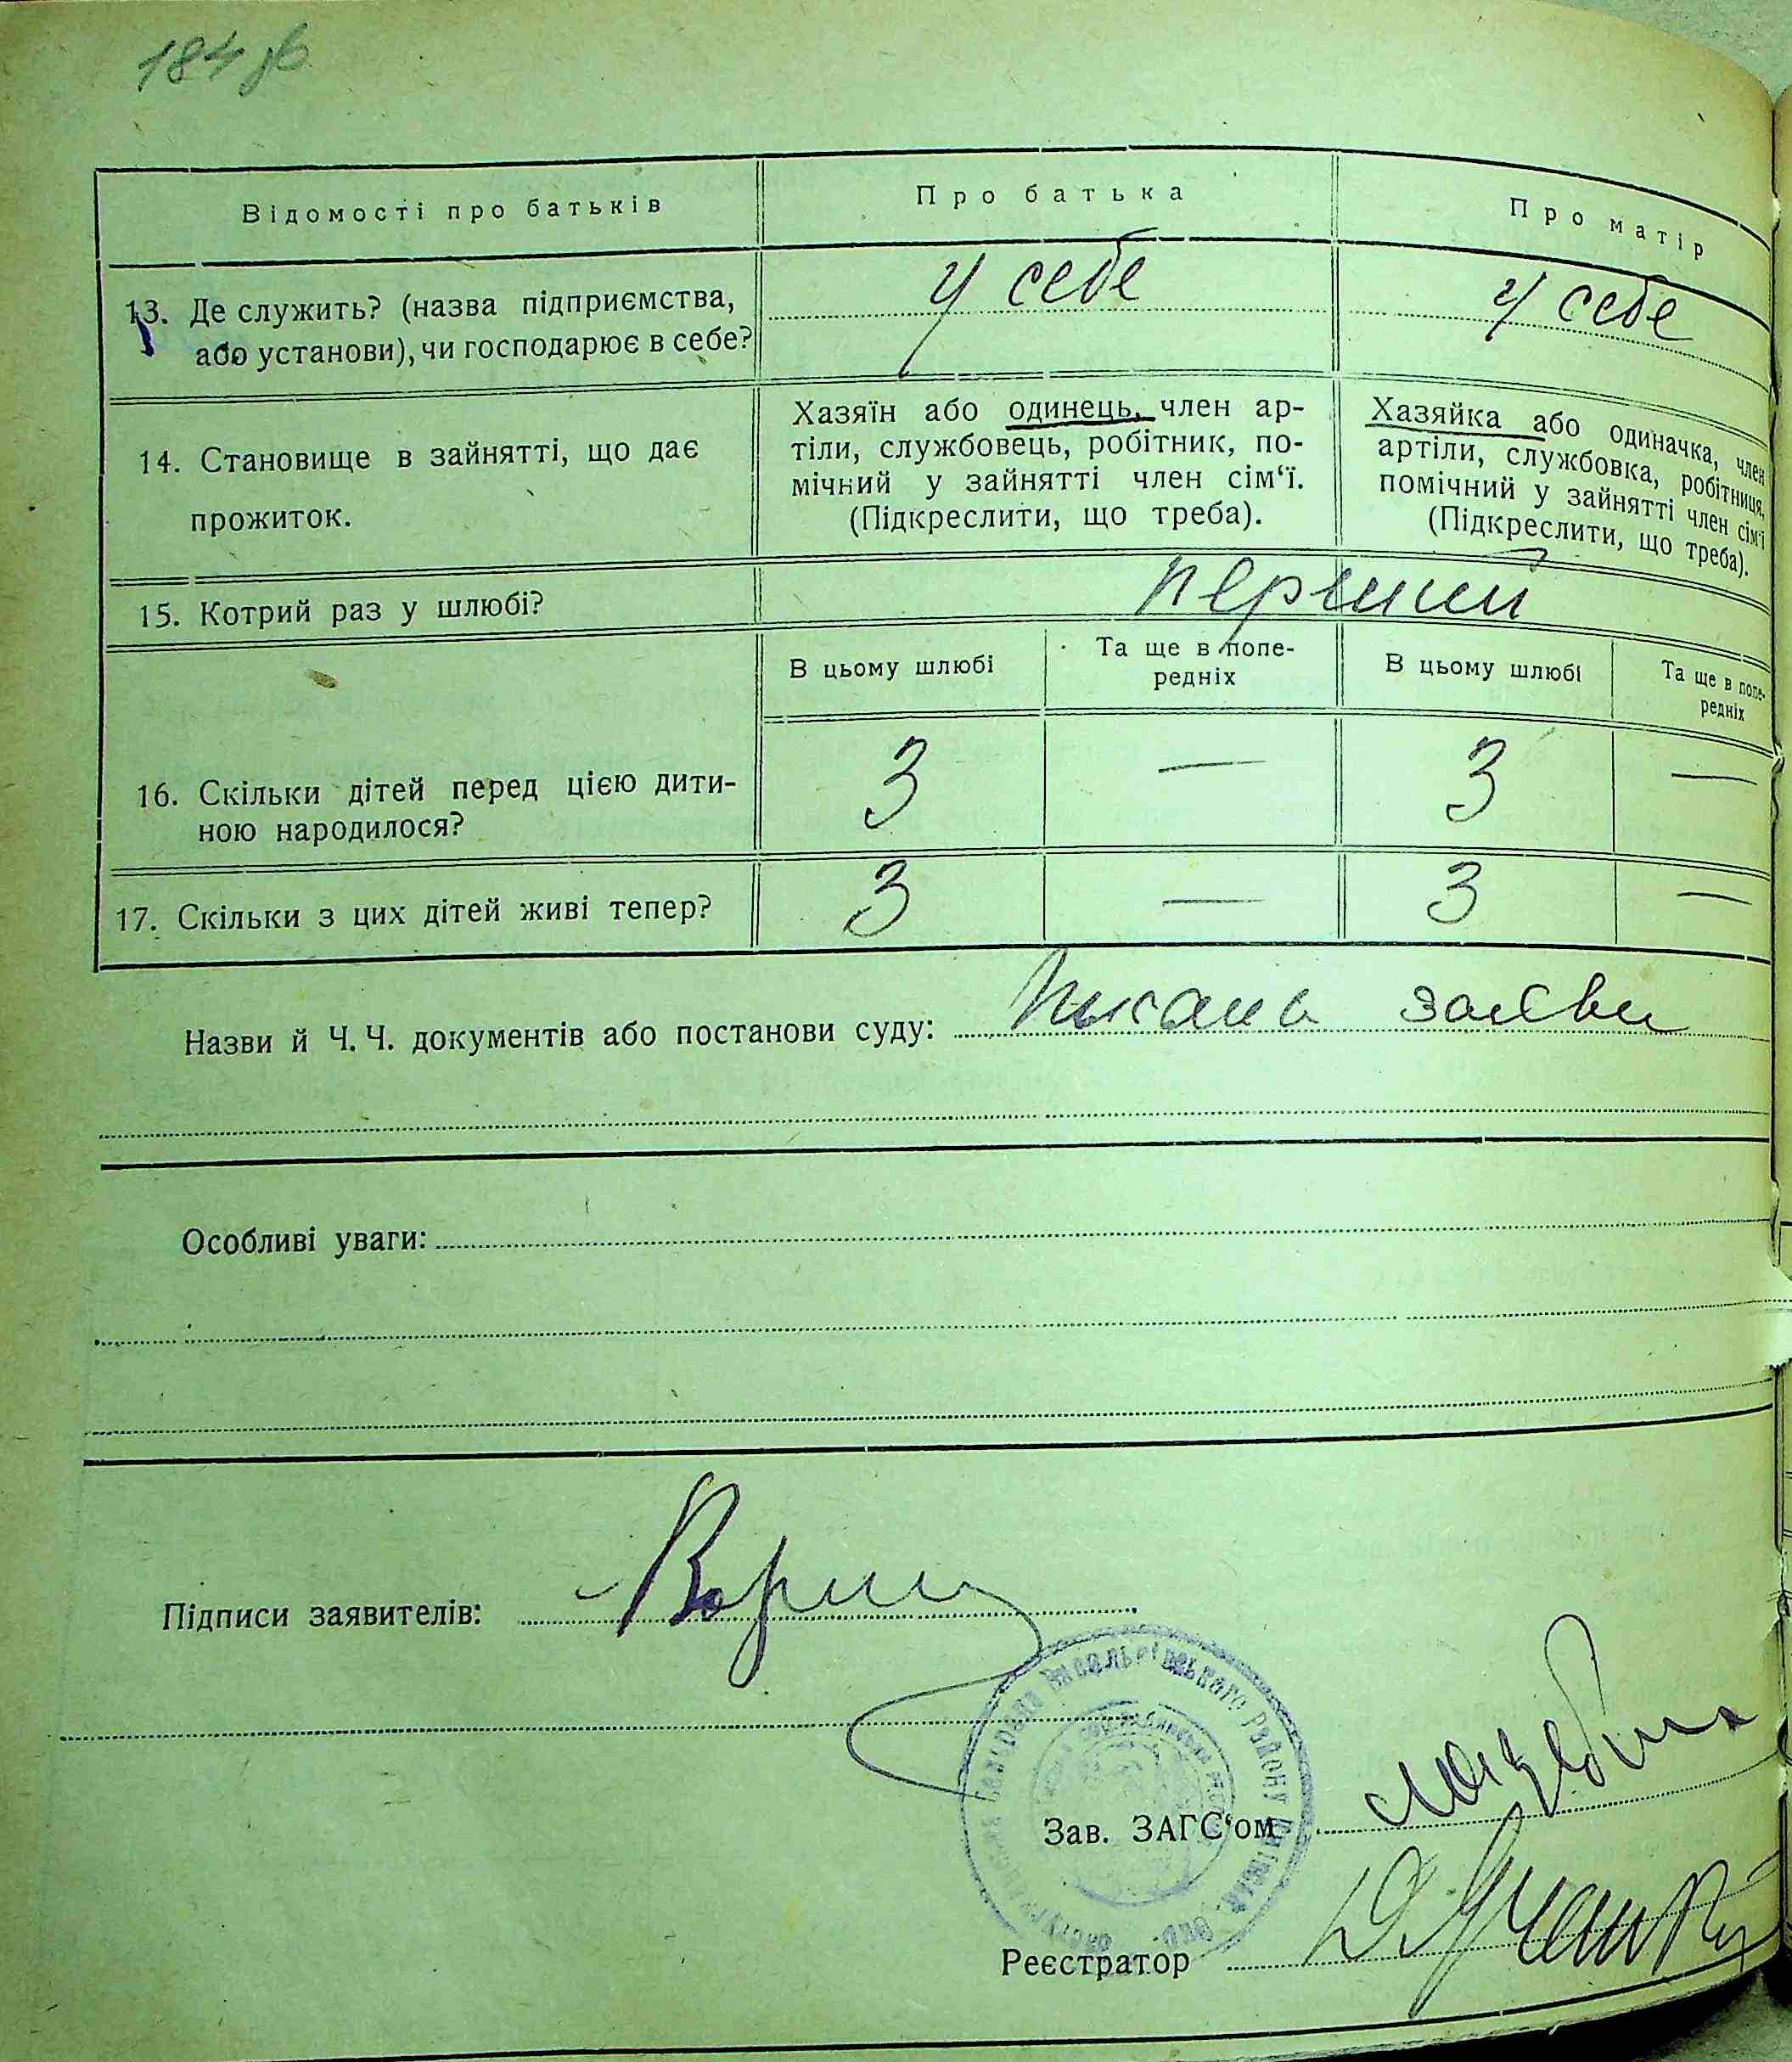 184 зв
Відомості про батьків
Про батька
Про матір
13. Де служить? (назва підприємства,
або установи), чи господарює в себе?
у себе
у себе
14. Становище в зайнятті, що дає
прожиток.
Хазяїн або одинець, член ар-
тіли, службовець, робітник, по-
мічний у зайнятті член сім‘ї.
(Підкреслити, що треба).
Хазяйка або одиначка, член
артіли, службовка, робітниця,
помічний у зайнятті член сім‘ї
(Підкреслити, що треба).
15. Котрий раз у шлюбі?
перший
В цьому шлюбі
Та ще в попе-
редніх
В цьому шлюбі
Та ще в попе-
редніх
16. Скільки дітей перед цією дити-
ною народилося?
3 — 3 —
17. Скільки з цих дітей живі тепер?
3 — 3 —
Назви й Ч. Ч. документів або постанови суду:
заяви
Особливі уваги:
Підписи заявителів:
району
Зав. ЗАГС‘ом
Реєстратор